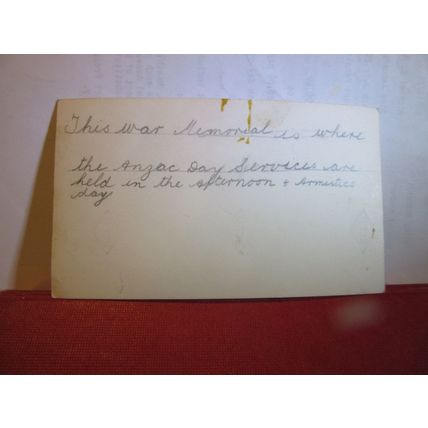 This war Memorial is where
the Anzac Day Services are
held in the afternoon + Armistice
day